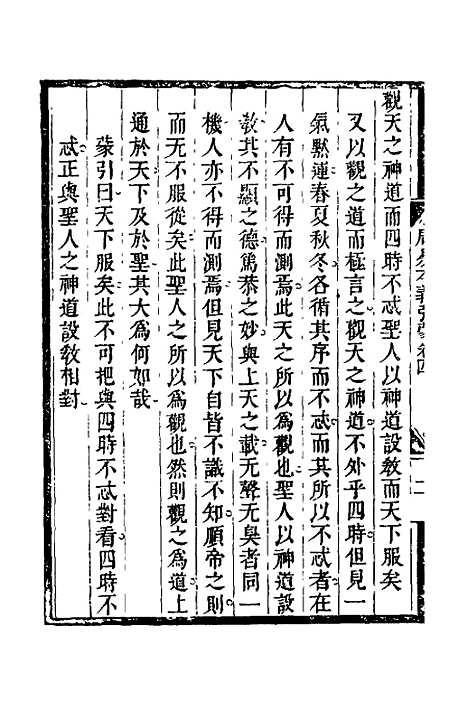 觀天之神道而四時不忒聖人以神道設敎而天下服矣
又以觀之道而極言之觀天之神道不外乎四時但見一
氣默運春夏秋冬各循其序而不忒而其所以不忒者在
人有不可得而測焉此天之所以為觀也聖人以神道設
敎其不顯之德篤恭之妙與上天之載无聲无臭者同一
機人亦不得而測焉但見天下自皆不識不知順帝之則
而无不服從矣此聖人之所以為觀也然則觀之為道上
通於天下及於聖其大為何如哉
蒙引曰天下服矣此不可把與四時不忒對看四時不
忒正與聖人之神道設敎相對